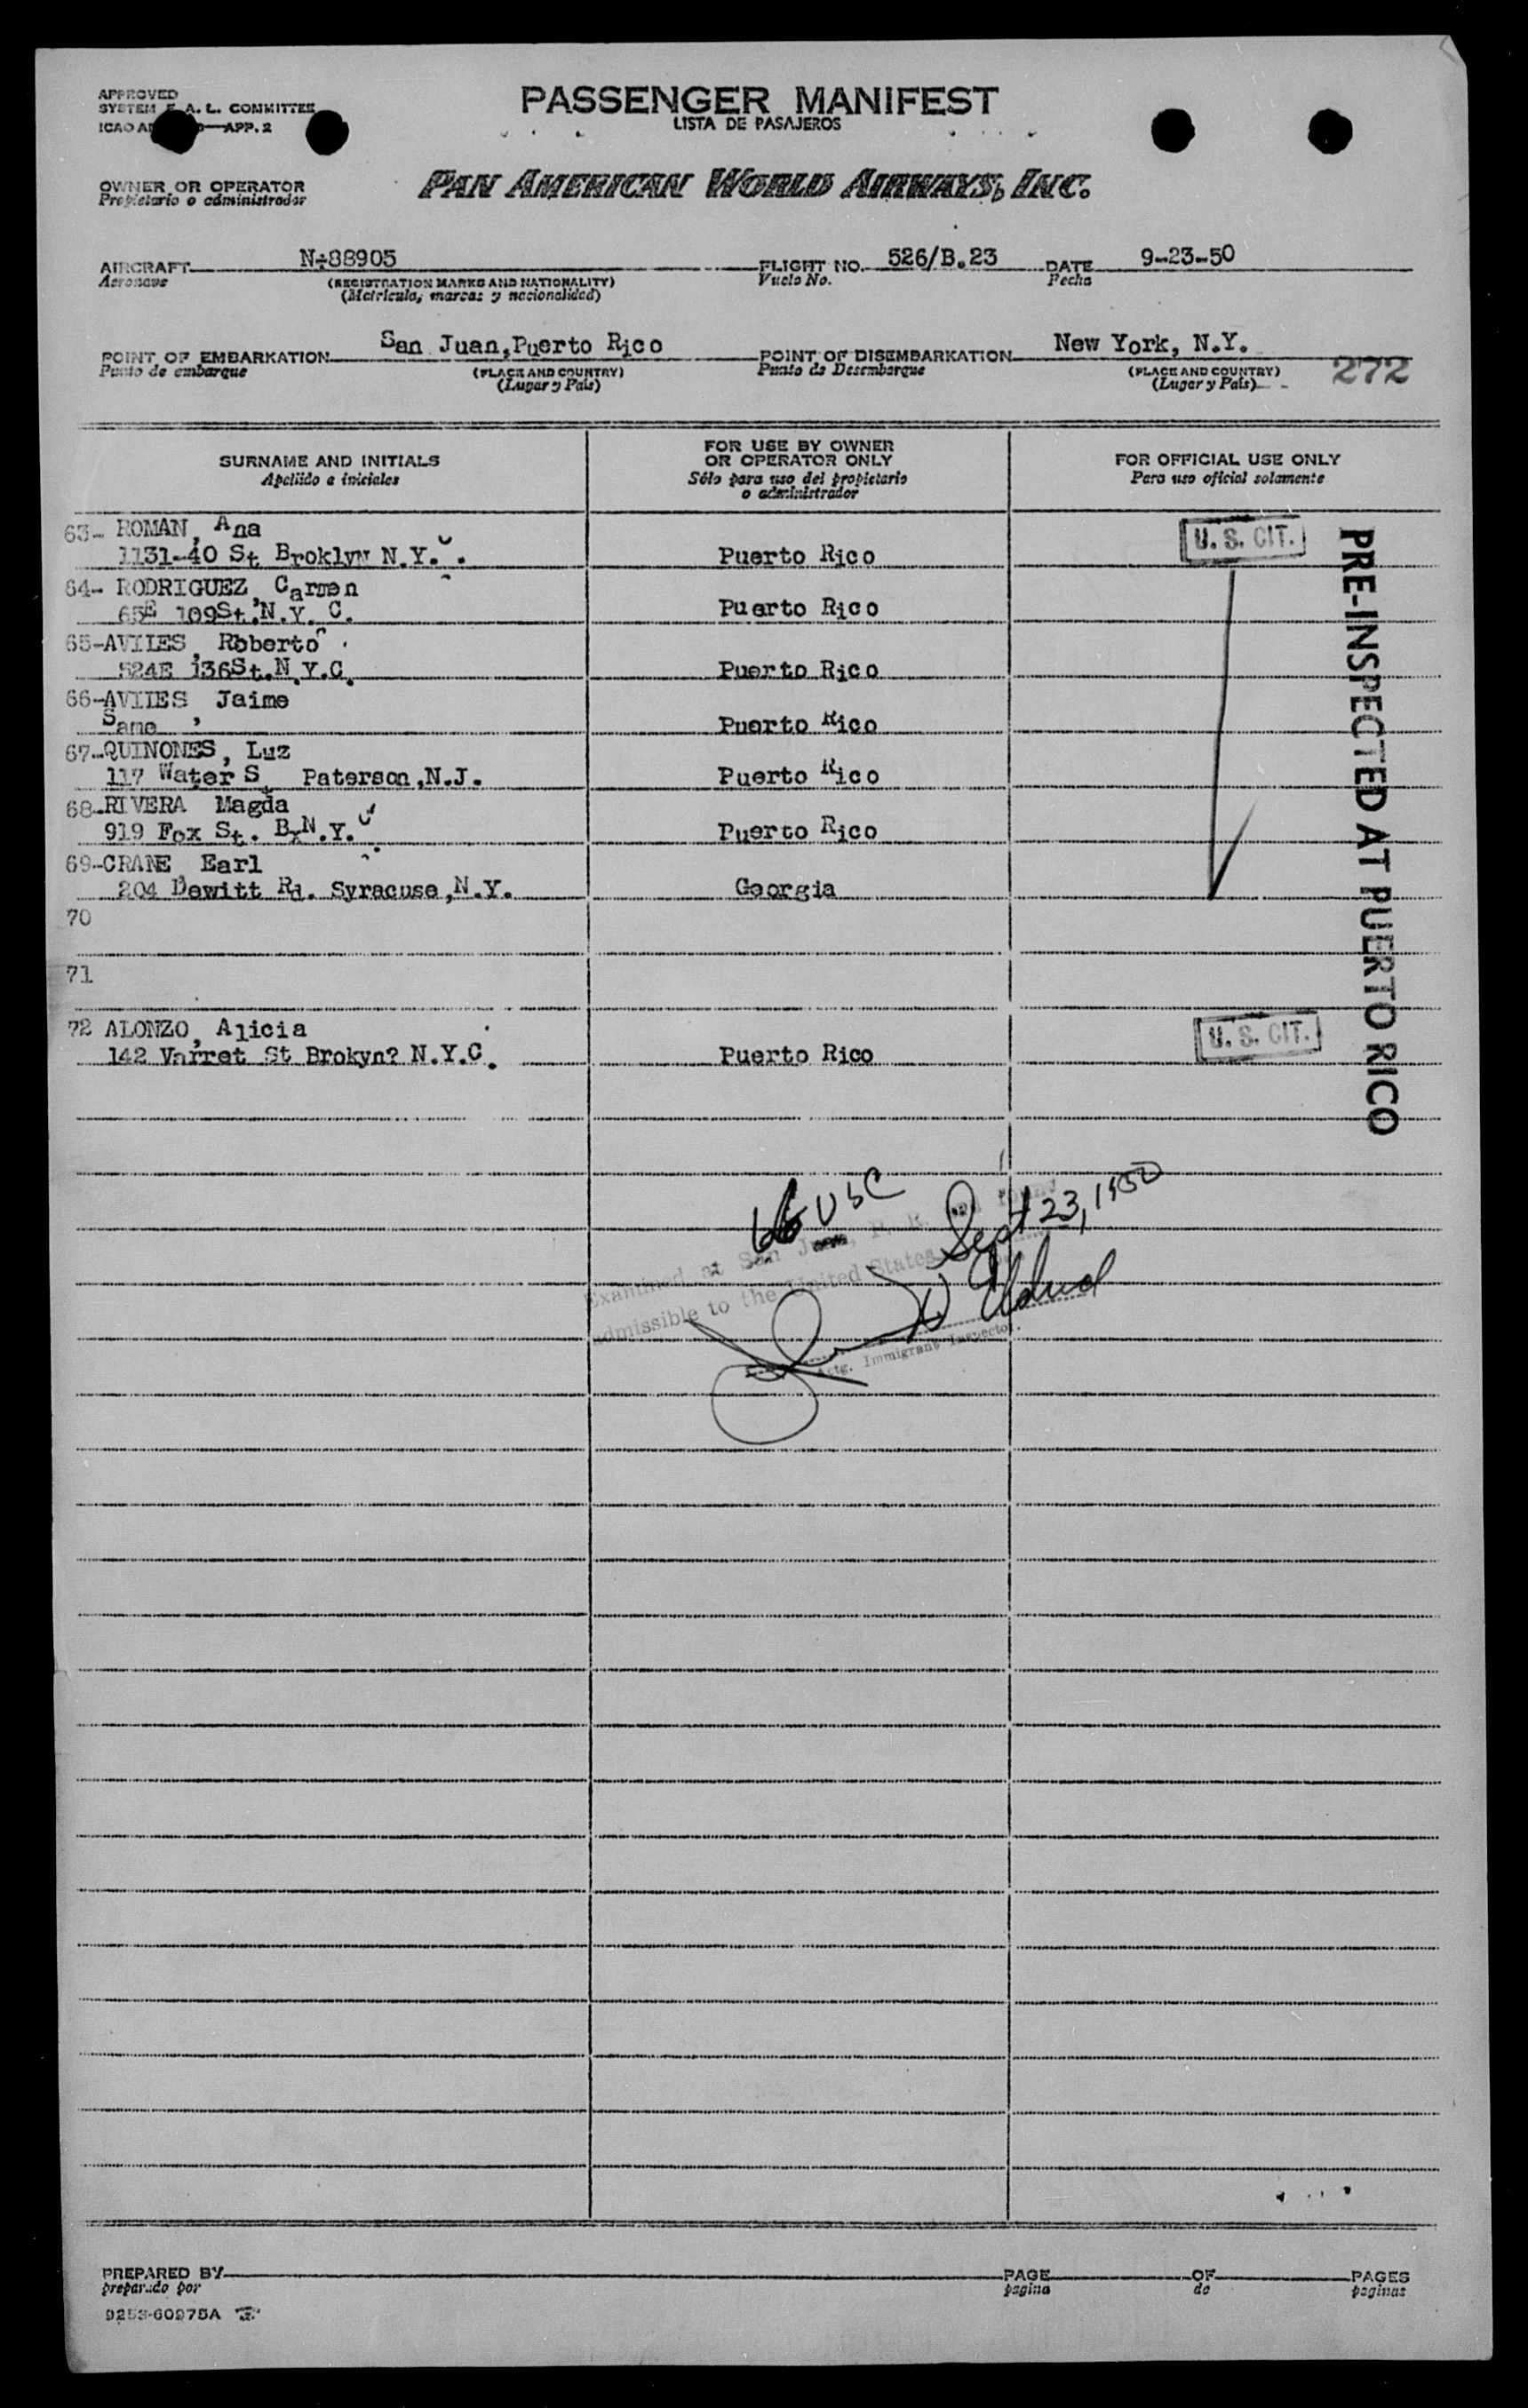 APPROVED
SYSTEM F. A. L. COMMITTEE
ICAO APP. 2
PASSENGER MANIFEST
LISTA DE PASAJEROS
OWNER OR OPERATOR
Propietario o administrador
PAN AMERICAN WORLD AIRWAYS, INC.
AIRCRAFT N-88905 FLIGHT NO. 526/B.23 DATE 9-23-50
Aeronave (REGISTRATION MARKS AND NATIONALITY) Vuelo No. Fecha
(Matricula, marcas y nacionalidad)
POINT OF EMBARKATION San Juan,Puerto Rico POINT OF DISEMBARKATION New York, N.Y.
Punto de embarque (PLACE AND COUNTRY) Punto de Desembarque (PLACE AND COUNTRY) 272
(Lugar y País) (Lugar y País)
SURNAME AND INITIALS
Apellido e iniciales
FOR USE BY OWNER
OR OPERATOR ONLY
Sólo para uso del propietario
o administrador
FOR OFFICIAL USE ONLY
Para uso oficial solamente
63- ROMAN, Ana
1131-40 St Broklyn N.Y. Puerto Rico U. S. CIT.
64- RODRIGUEZ, Carmen
65E 109St.N.Y. C. Puerto Rico
65-AVILES, Roberto
524E 136St.N.Y.C. Puerto Rico
66-AVIIES, Jaime
Same Puerto Rico
67-QUINONES, Luz
117 Water S Paterson,N.J. Puerto Rico
68-RIVERA Magda
919 Fox St. BxN.Y. Puerto Rico
69-CRANE, Earl
204 Dewitt Rd. Syracuse,N.Y. Georgia
70
71
72 ALONZO, Alicia
142 Varret St Brokyn? N.Y.C. Puerto Rico U. S. CIT.
PRE-INSPECTED AT PUERTO RICO
66 USC Sept 23, 1950
Examined at San Juan, P. R. and found
admissible to the United States
Actg. Immigrant Inspector.
PREPARED BY PAGE OF PAGES
preparado por pagina de paginas
9253-60975A